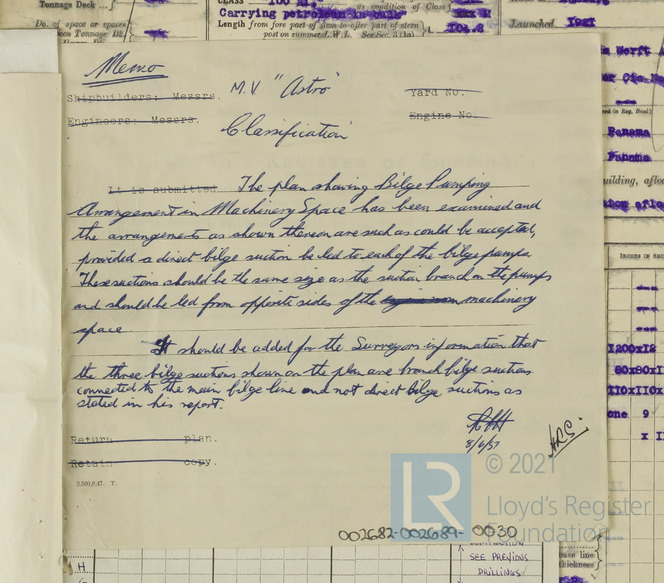 Tonnage Deck
CLASS 100 A1.
as condition of Class
Carrying petroleum in bulk
Do. of space or spaces
Length from fore part of stem to after part of stern
post on summer L.W.L. See Sec. 3 (1a)
Launched 1921
Memo
Shipbuilders: Messrs.
M.V "Astro"
Yard No.
Engineers: Messrs.
Engine No.
Classification
It is submitted The plan showing Bilge Pumping
Arrangement in Machinery Space has been examined and
the arrangements as shown thereon are such as could be accepted,
provided a direct bilge suction be led to each of the bilge pumps.
These suctions should be the same size as the suction branch on the pumps
and should be led from opposite sides of the machinery
space.
It should be added for the Surveyors information that
the three bilge suctions shown on the plan are branch bilge suctions
connected to the main bilge line and not direct bilge suctions as
stated in his report.
8/6/51
Return plan.
Retain copy.
2,500,9.47. T.
002682-002689-0030
LR
© 2021
Lloyd's Register
Foundation
SEE PREVIOUS
DRILLINGS
H
Panama
Panama
1200x12
110x110
one 9